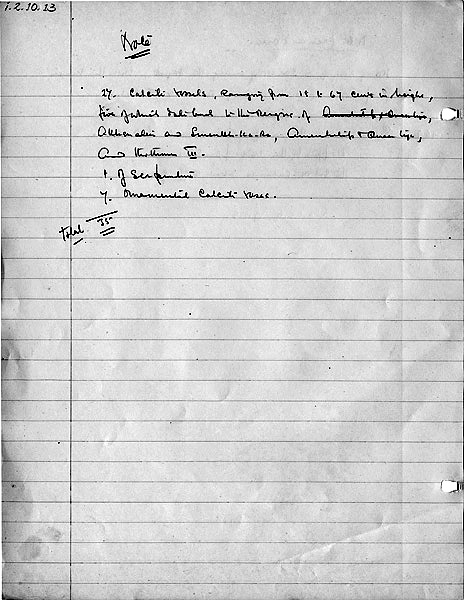 1.2.10.13
Note
27. Calcite Vessels, ranging from 18 to 67 cents in height,
five of which dedicated to the Reigns of Amenhotep & Queen Tiye,
Akhenaten and Smenkh-ka-Re, Amenhotep & Queen Tiye,
and Thothmes III.
1. of Serpentine
7. Ornamental Calcite Vases.
Total 35